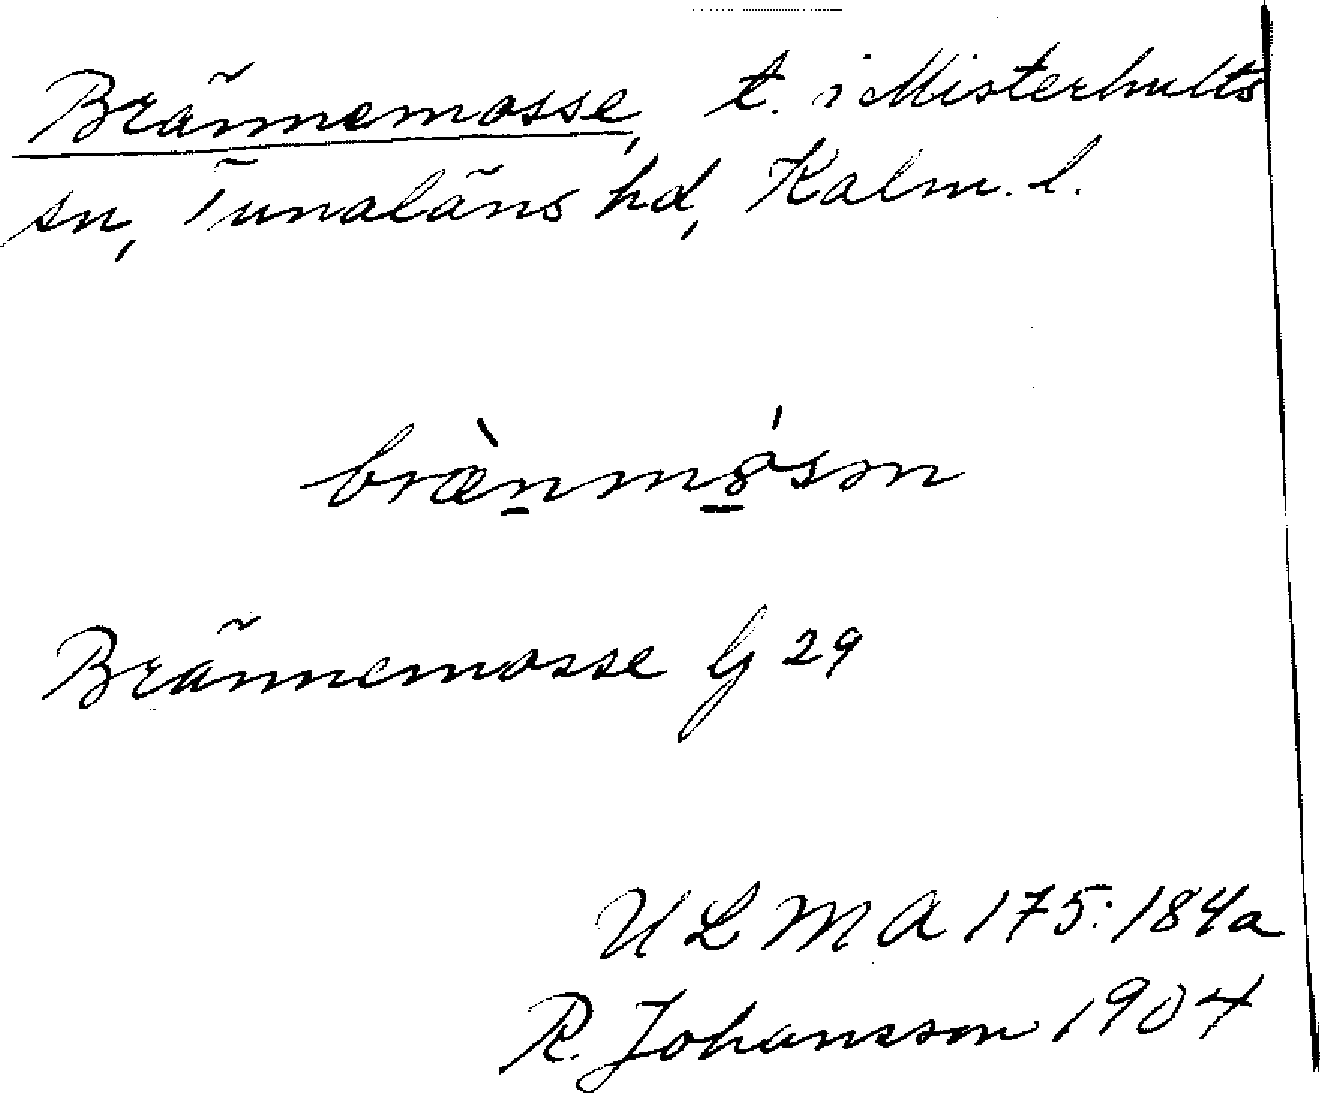 Brännemosse, t. i Misterhults
sn, Tunaläns hd, Kalm. l.
Brännemosse G 29
ULMA 175:184a
R. Johansson 1904